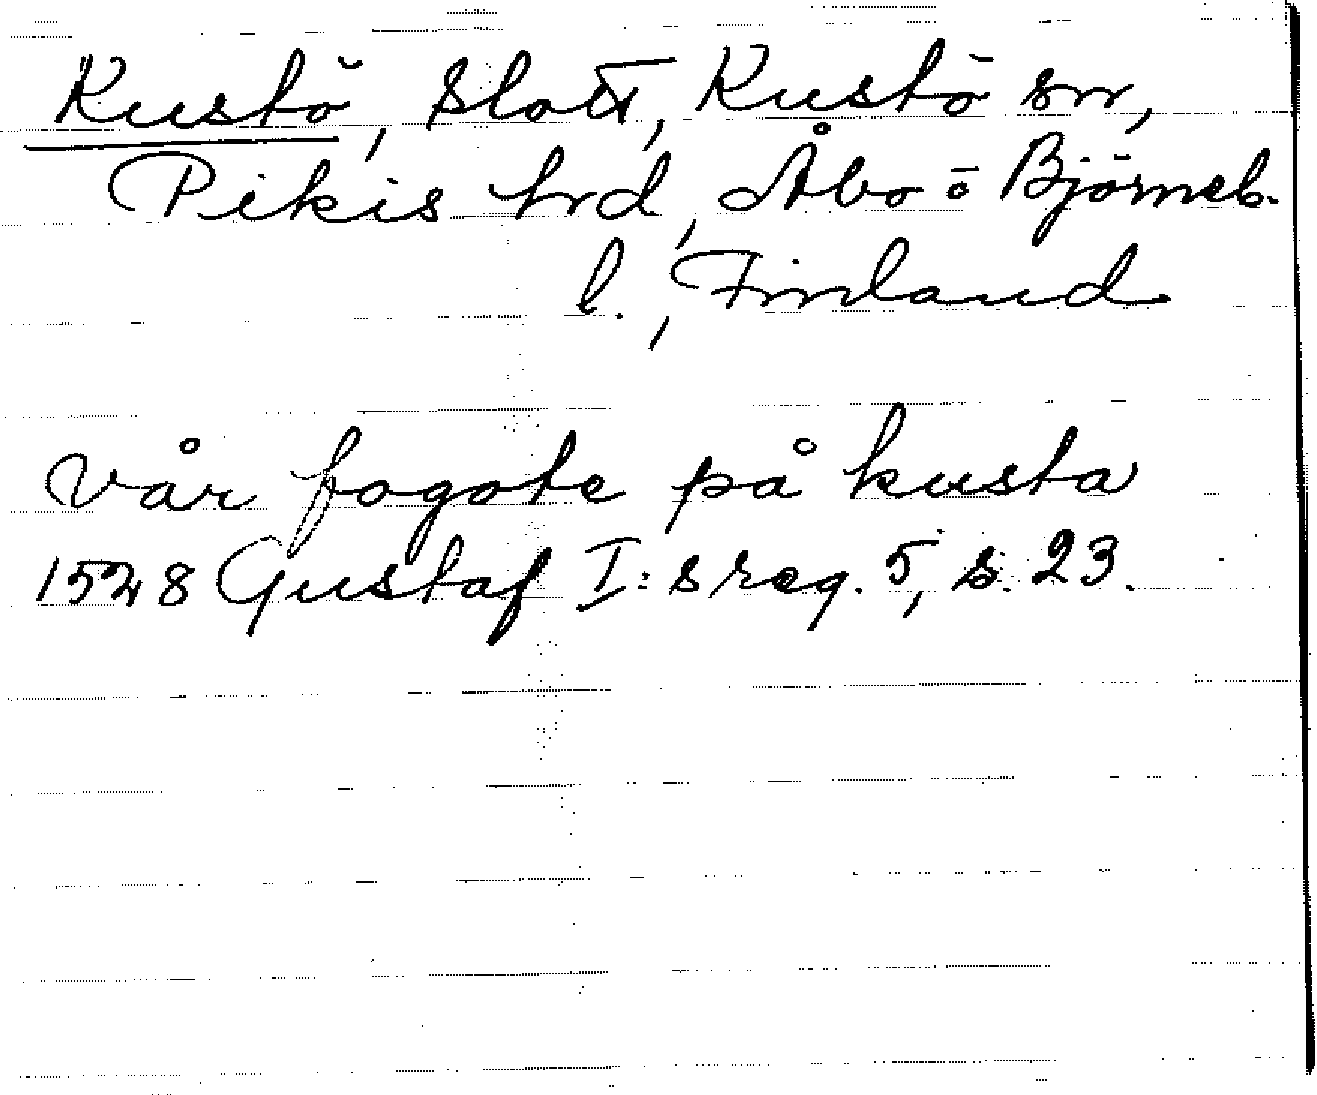 Kustö, slott, Kustö sn,
Pikis hrd, Åbo o Björneb.
l., Finland
vår fogote på kusta
1528 Gustaf I:s reg. 5, s. 23.